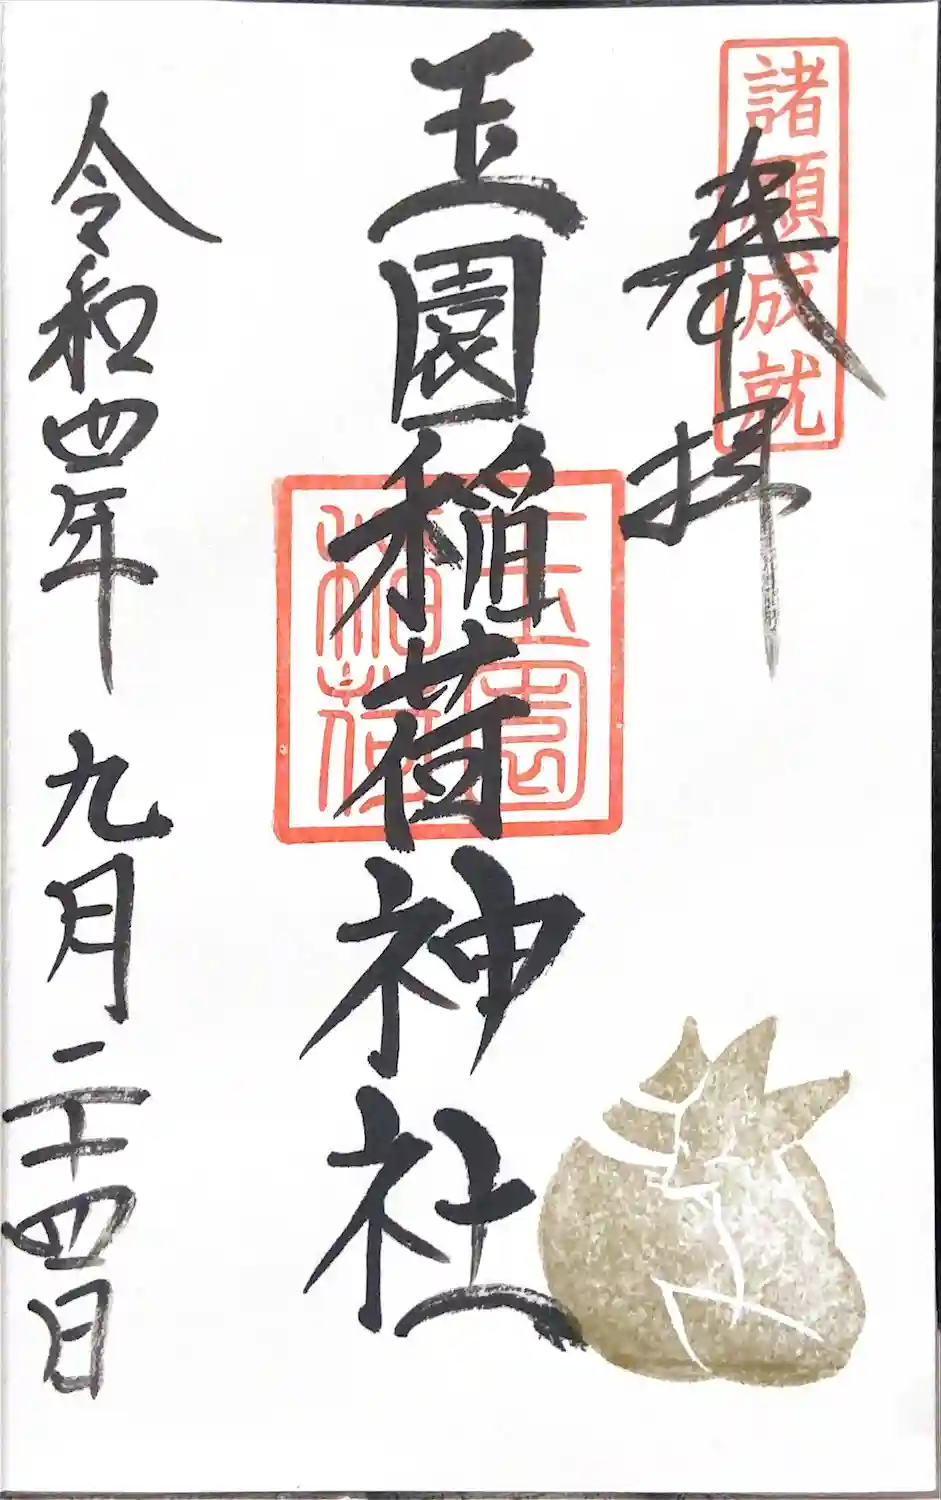 諸願成就
奉拝
玉園稲荷神社
玉園
稲荷
令和四年九月二十四日